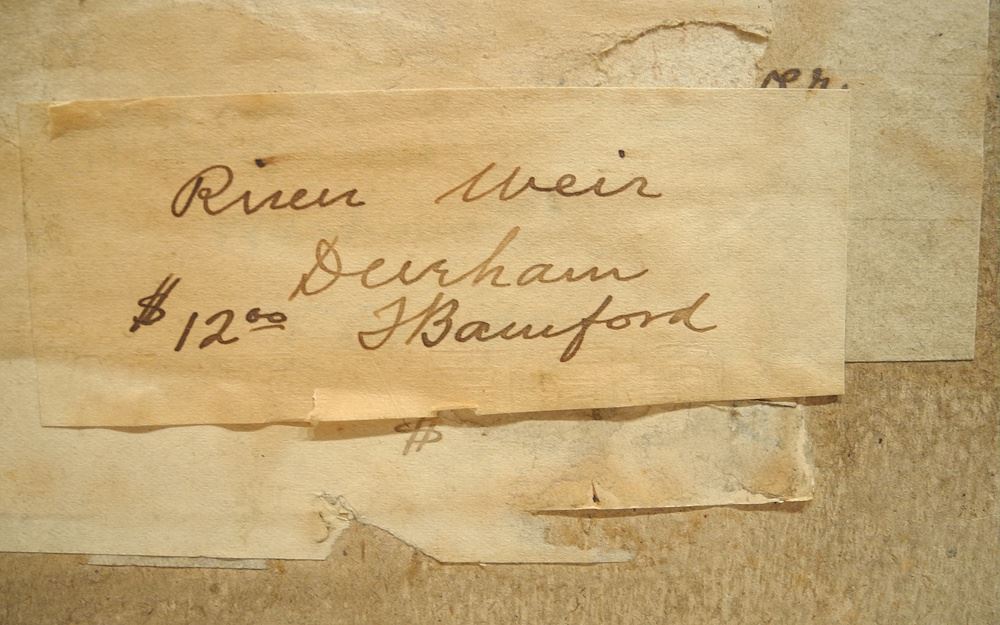 River Weir
Durham
$12.00 T Bamford
$